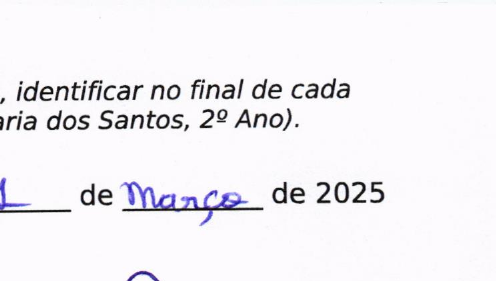 , identificar no final de cada
aria dos Santos, 2º Ano).
de Março de 2025